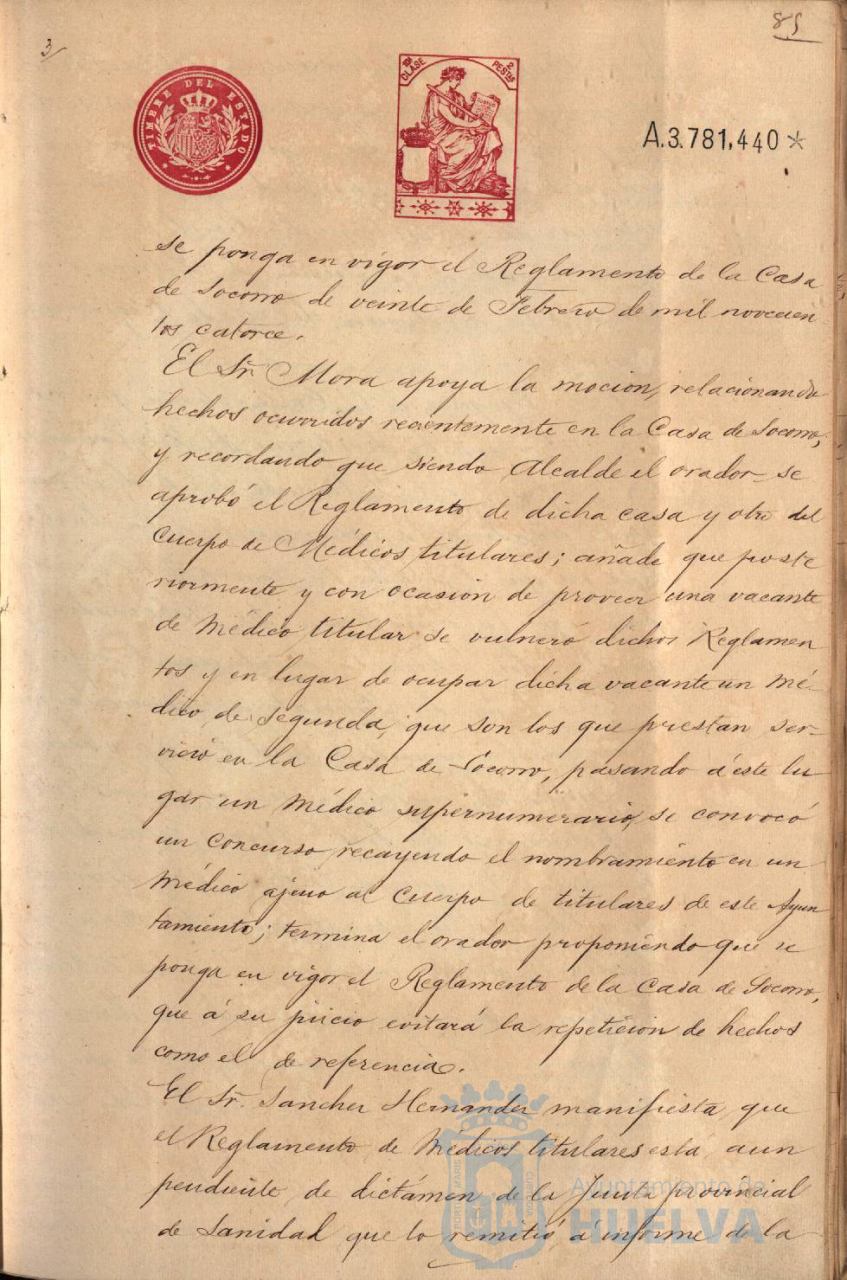 3/
85
TIMBRE DEL ESTADO
10ª CLASE
2 PESTAS
A.3.781,440*
se ponga en vigor el Reglamento de la Casa
de Socorro de veinte de Febrero de mil novecien
tos catorce.
El Sr. Mora apoya la moción, relacionando
hechos ocurridos recientemente en la Casa de Socorro,
y recordando que siendo Alcalde el orador se
aprobó el Reglamento de dicha casa y otro del
Cuerpo de Médicos titulares; añade que poste
riormente y con ocasión de proveer una vacante
de Médico titular se vulneró dichos Reglamen
tos y en lugar de ocupar dicha vacante un Mé-
dico de segunda, que son los que prestan ser-
vicio en la Casa de Socorro, pasando á este lu
gar un Médico supernumerario, se convocó
un concurso, recayendo el nombramiento en un
Médico ajeno al Cuerpo de titulares de este Ayun
tamiento; termina el orador proponiendo que se
ponga en vigor el Reglamento de la Casa de Socorro,
que á su juicio evitará la repetición de hechos
como el de referencia.
El Sr. Sanchez Hernandez manifiesta que
el Reglamento de Médicos titulares está aun
pendiente de dictámen de la Junta provincial
de Sanidad que lo remitió á informe de la
Ayuntamiento de
HUELVA